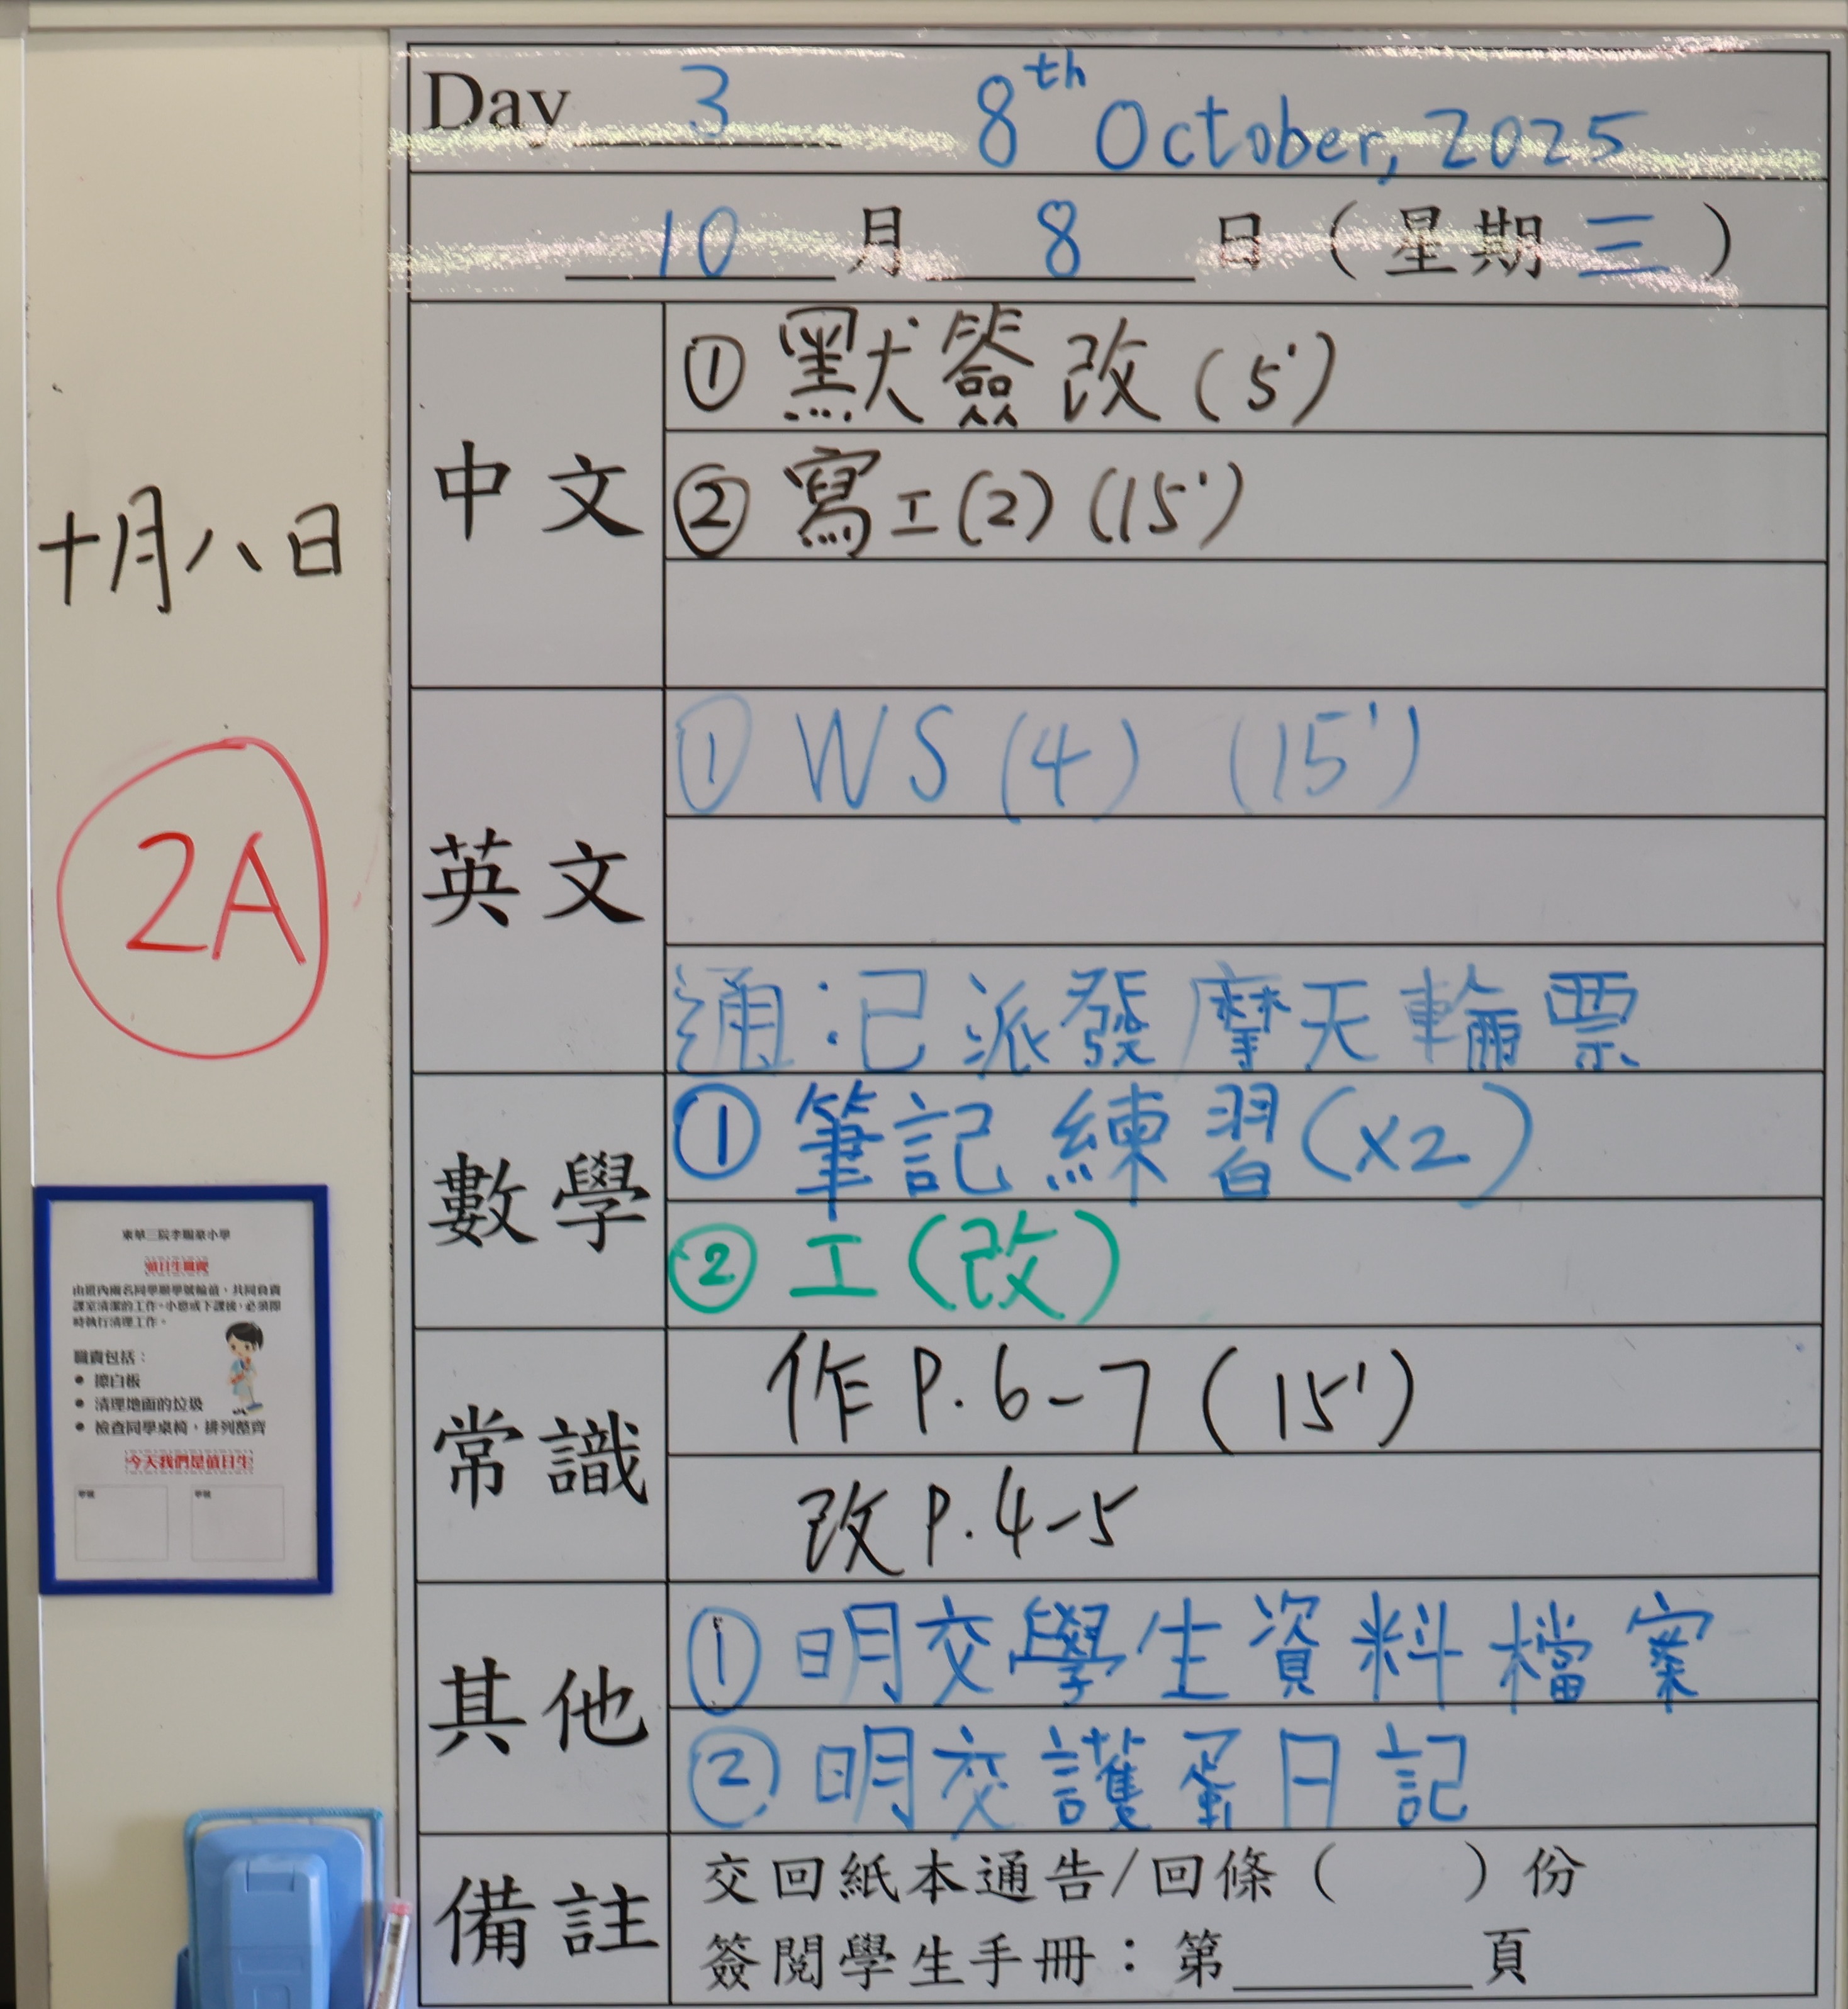 Day 3 8th October, 2025
10月8日(星期三)
中文
①默簽改(5')
②寫工(2)(15')
十月八日
英文
①WS(4) (15')
通:已派發摩天輪票
2A
數學
①筆記練習(x2)
②工(改)
常識
作P.6-7(15')
改P.4-5
其他
①明交學生資料檔案
②明交護蛋日記
備註
交回紙本通告/回條( )份
簽閱學生手冊:第______頁
值日生職責
由班內兩名同學順學號輪值,共同負責
課室清潔的工作。小息或下課後,必須即
時執行清理工作。
職責包括:
● 擦白板
● 清理地面的垃圾
● 檢查同學桌椅,排列整齊
今天我們是值日生
學號 學號